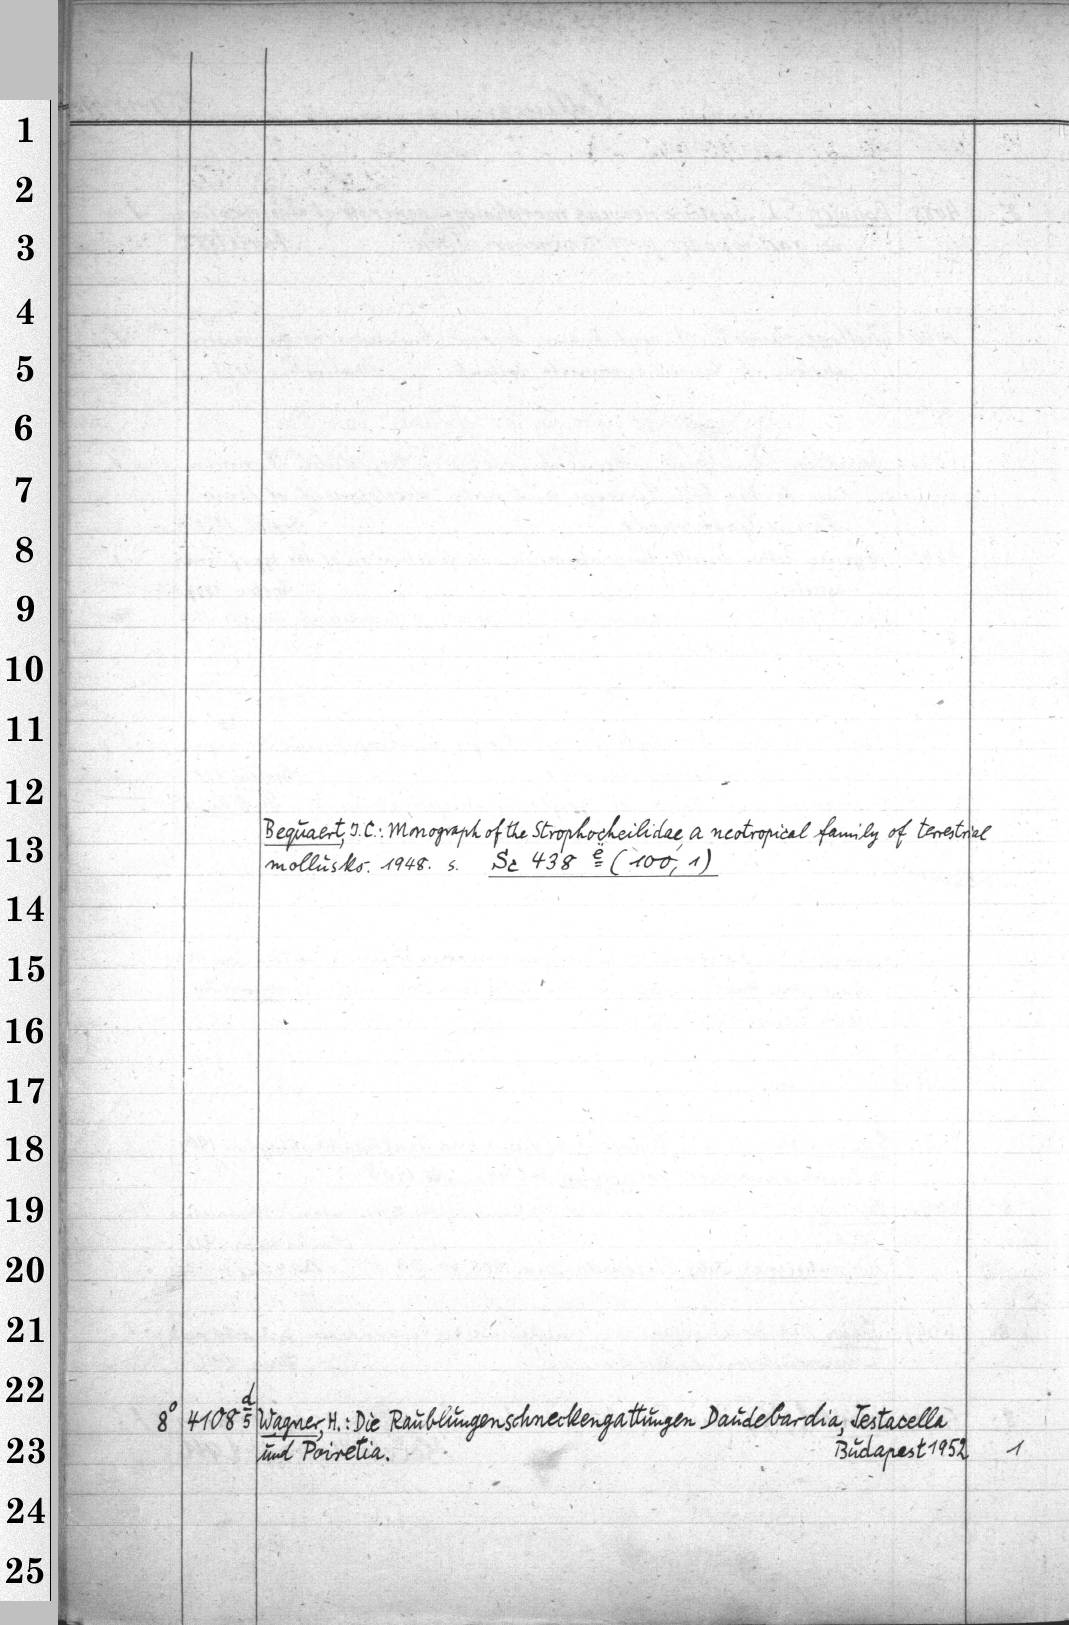 1
2
3
4
5
6
7
8
9
10
11
12
Bequaert, J.C.: Monograph of the Strophocheilidae, a neotropical family of terrestrial
13
mollusks. 1948. s. Sc 438 ë (100, 1)
14
15
16
17
18
19
20
21
22
8° 4108 d/5 Wagner, H.: Die Raublungenschneckengattungen Daudebardia, Testacella
23
und Poiretia. Budapest 1952 1
24
25